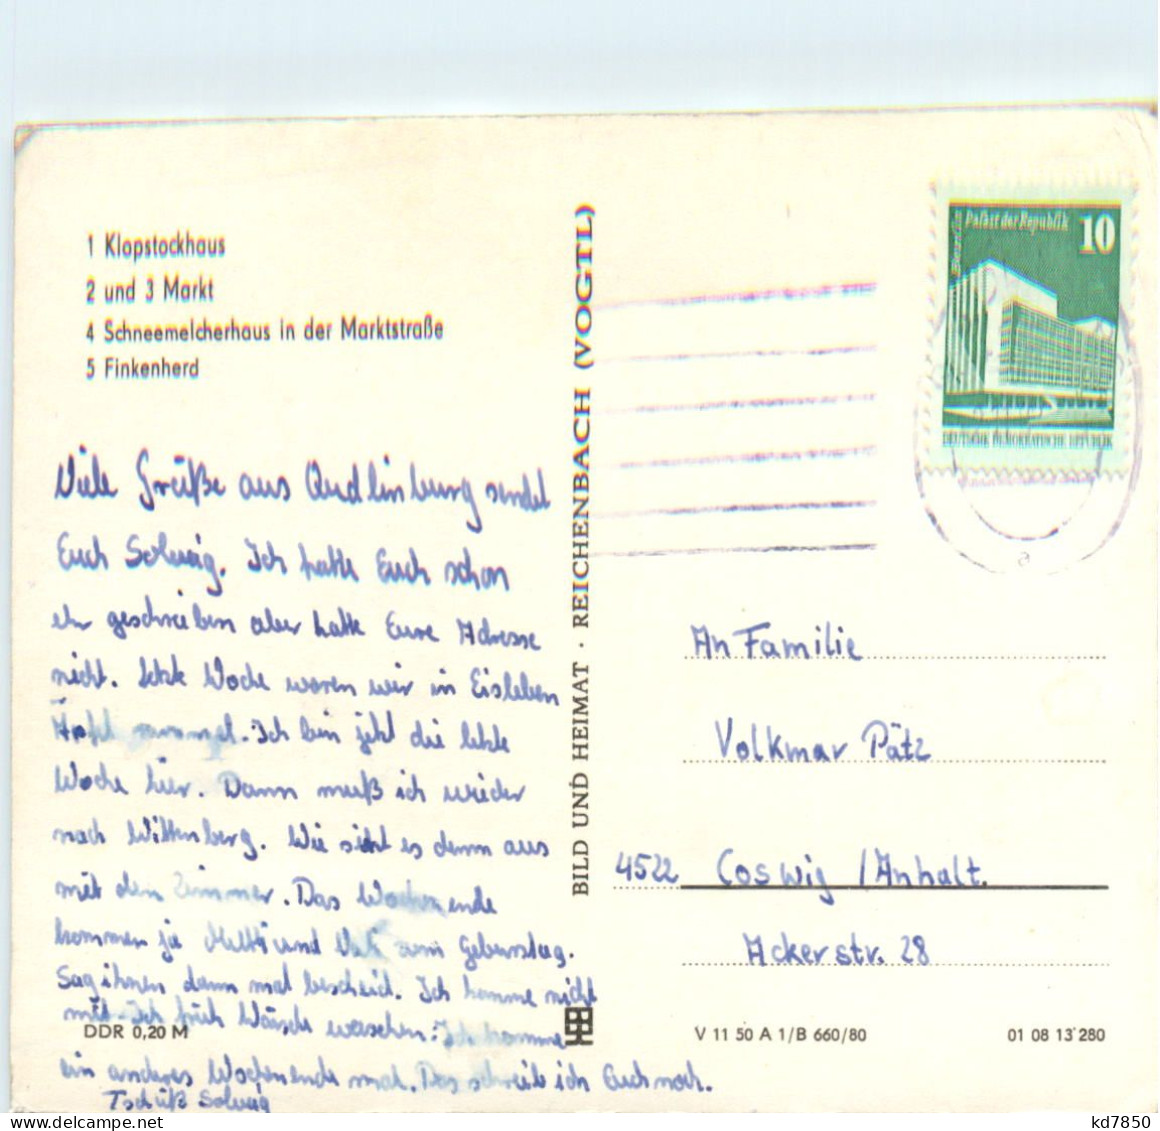 1 Klopstockhaus
2 und 3 Markt
4 Schneemelcherhaus in der Marktstraße
5 Finkenherd
Viele Grüße aus Quedlinburg sendet
Euch Solweig. Ich hatte Euch schon
ehr geschrieben aber hatte Eure Adresse
nicht. Letzte Woche waren wir in Eisleben
Äpfel. Ich bin jetzt die letzte
Woche hier. Dann muß ich wieder
nach Wittenberg. Wie sieht es denn aus
mit den Zimmer. Das Wochenende
kommen ja Mutti und Vati zum Geburtstag.
Sag ihnen dann mal bescheid. Ich komme nicht
mit. Ich früh Wäsche waschen. Ich komme
ein anderes Wochenende mal. Das schreib ich Euch noch.
Tschüß Solweig
DDR 0,20 M
BILD UND HEIMAT · REICHENBACH (VOGTL)
Palast der Republik
10
DEUTSCHE DEMOKRATISCHE REPUBLIK
a
An Familie
Volkmar Pätz
4522 Coswig /Anhalt.
Ackerstr. 28
V 11 50 A 1/B 660/80
01 08 13 280
kd7850